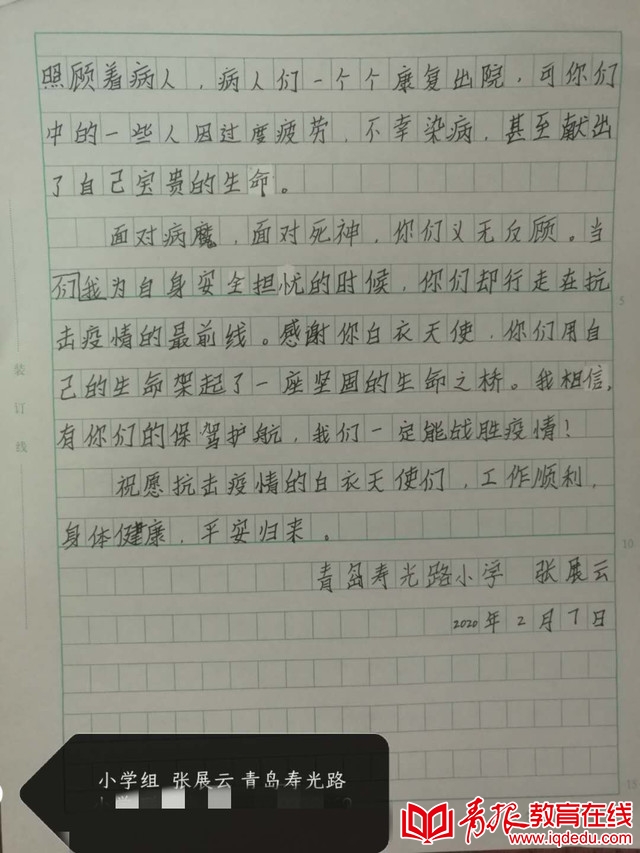 照顾着病人，病人们一个个康复出院，可你们
中的一些人因过度疲劳，不幸染病，甚至献出
了自己宝贵的生命。
面对病魔，面对死神，你们义无反顾。当
们我为自身安全担忧的时候，你们却行走在抗
击疫情的最前线。感谢你白衣天使，你们用自
己的生命架起了一座坚固的生命之桥。我相信，
有你们的保驾护航，我们一定能战胜疫情！
祝愿抗击疫情的白衣天使们，工作顺利，
身体健康，平安归来。
青岛寿光路小学 张展云
2020年2月7日
装订线
5
10
15
小学组 张展云 青岛寿光路
青报教育在线
www.iqdedu.com